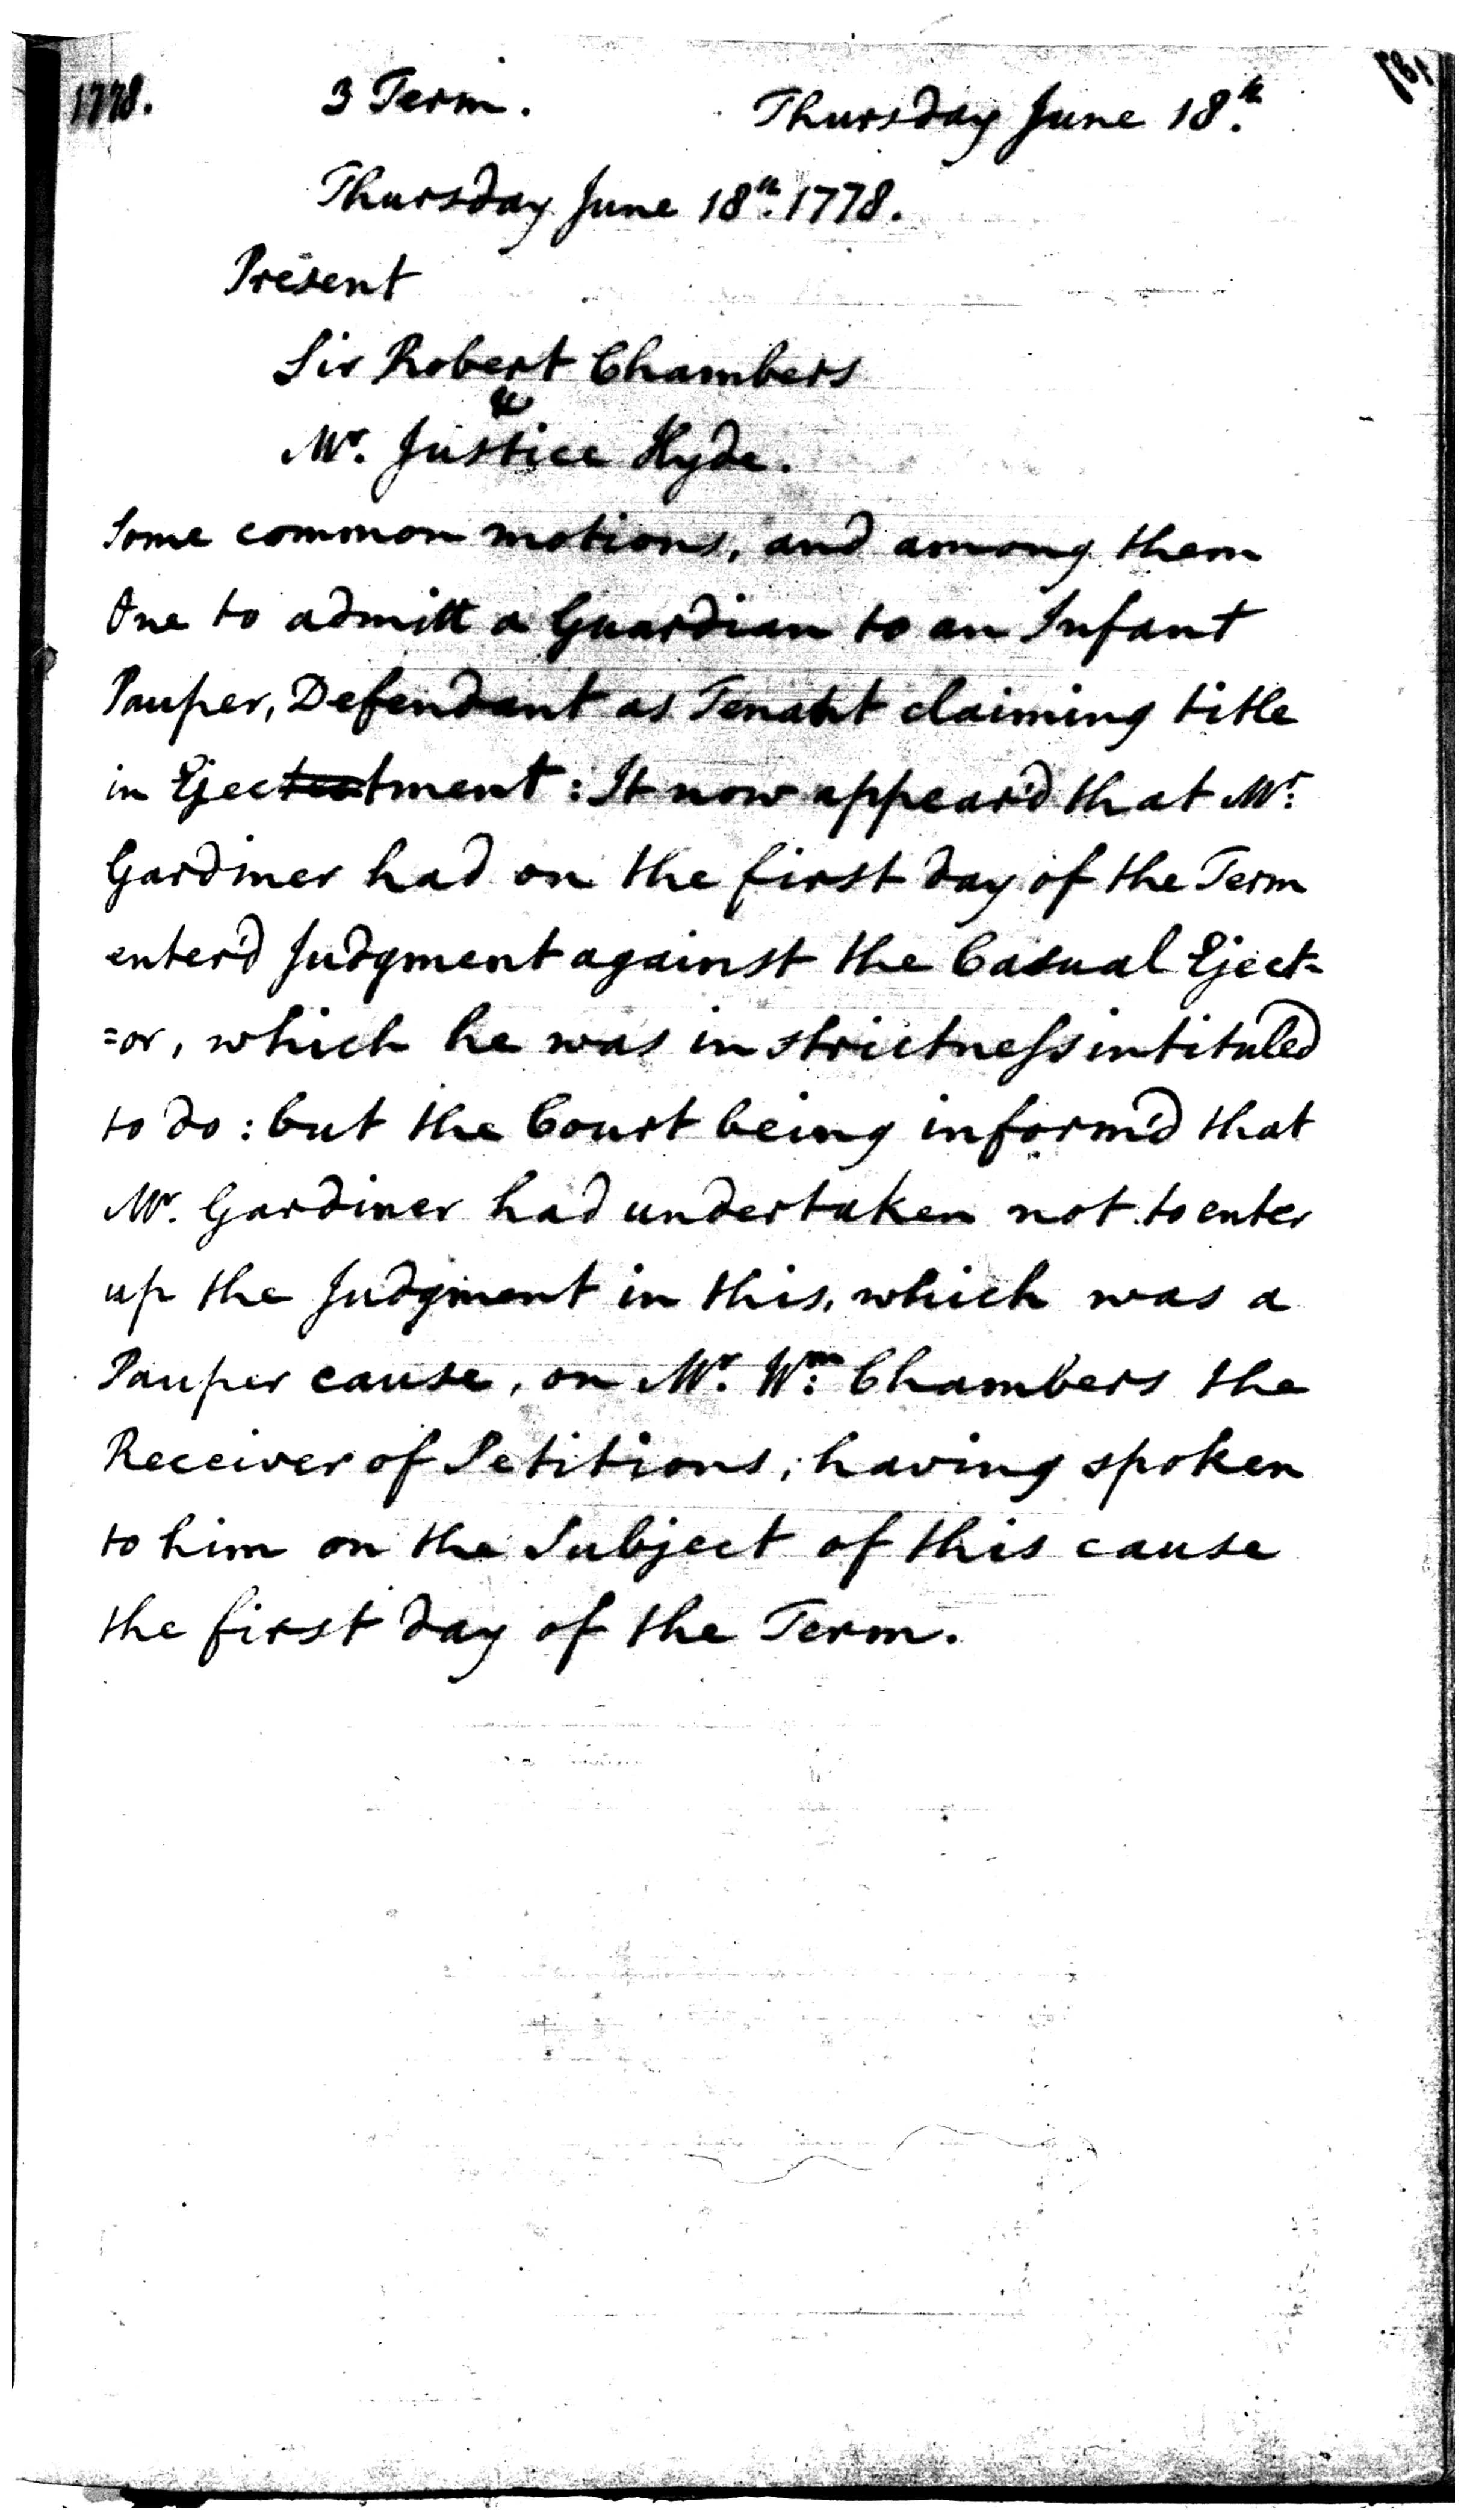 1778. 3 Term. Thursday June 18th.
Thursday June 18th. 1778.
Present
Sir Robert Chambers
&
Mr. Justice Hyde.
Some common motions, and among them
One to admitt a Guardian to an Infant
Pauper, Defendant as Tenant claiming title
in Ejectment: It now appear'd that Mr.
Gardiner had on the first day of the Term
enter'd Judgment against the Casual Eject=
=or, which he was in strictness intituled
to do: but the Court being inform'd that
Mr. Gardiner had undertaken not to enter
up the Judgment in this, which was a
Pauper cause, on Mr. Wm: Chambers the
Receiver of Petitions, having spoken
to him on the Subject of this cause
the first day of the Term.